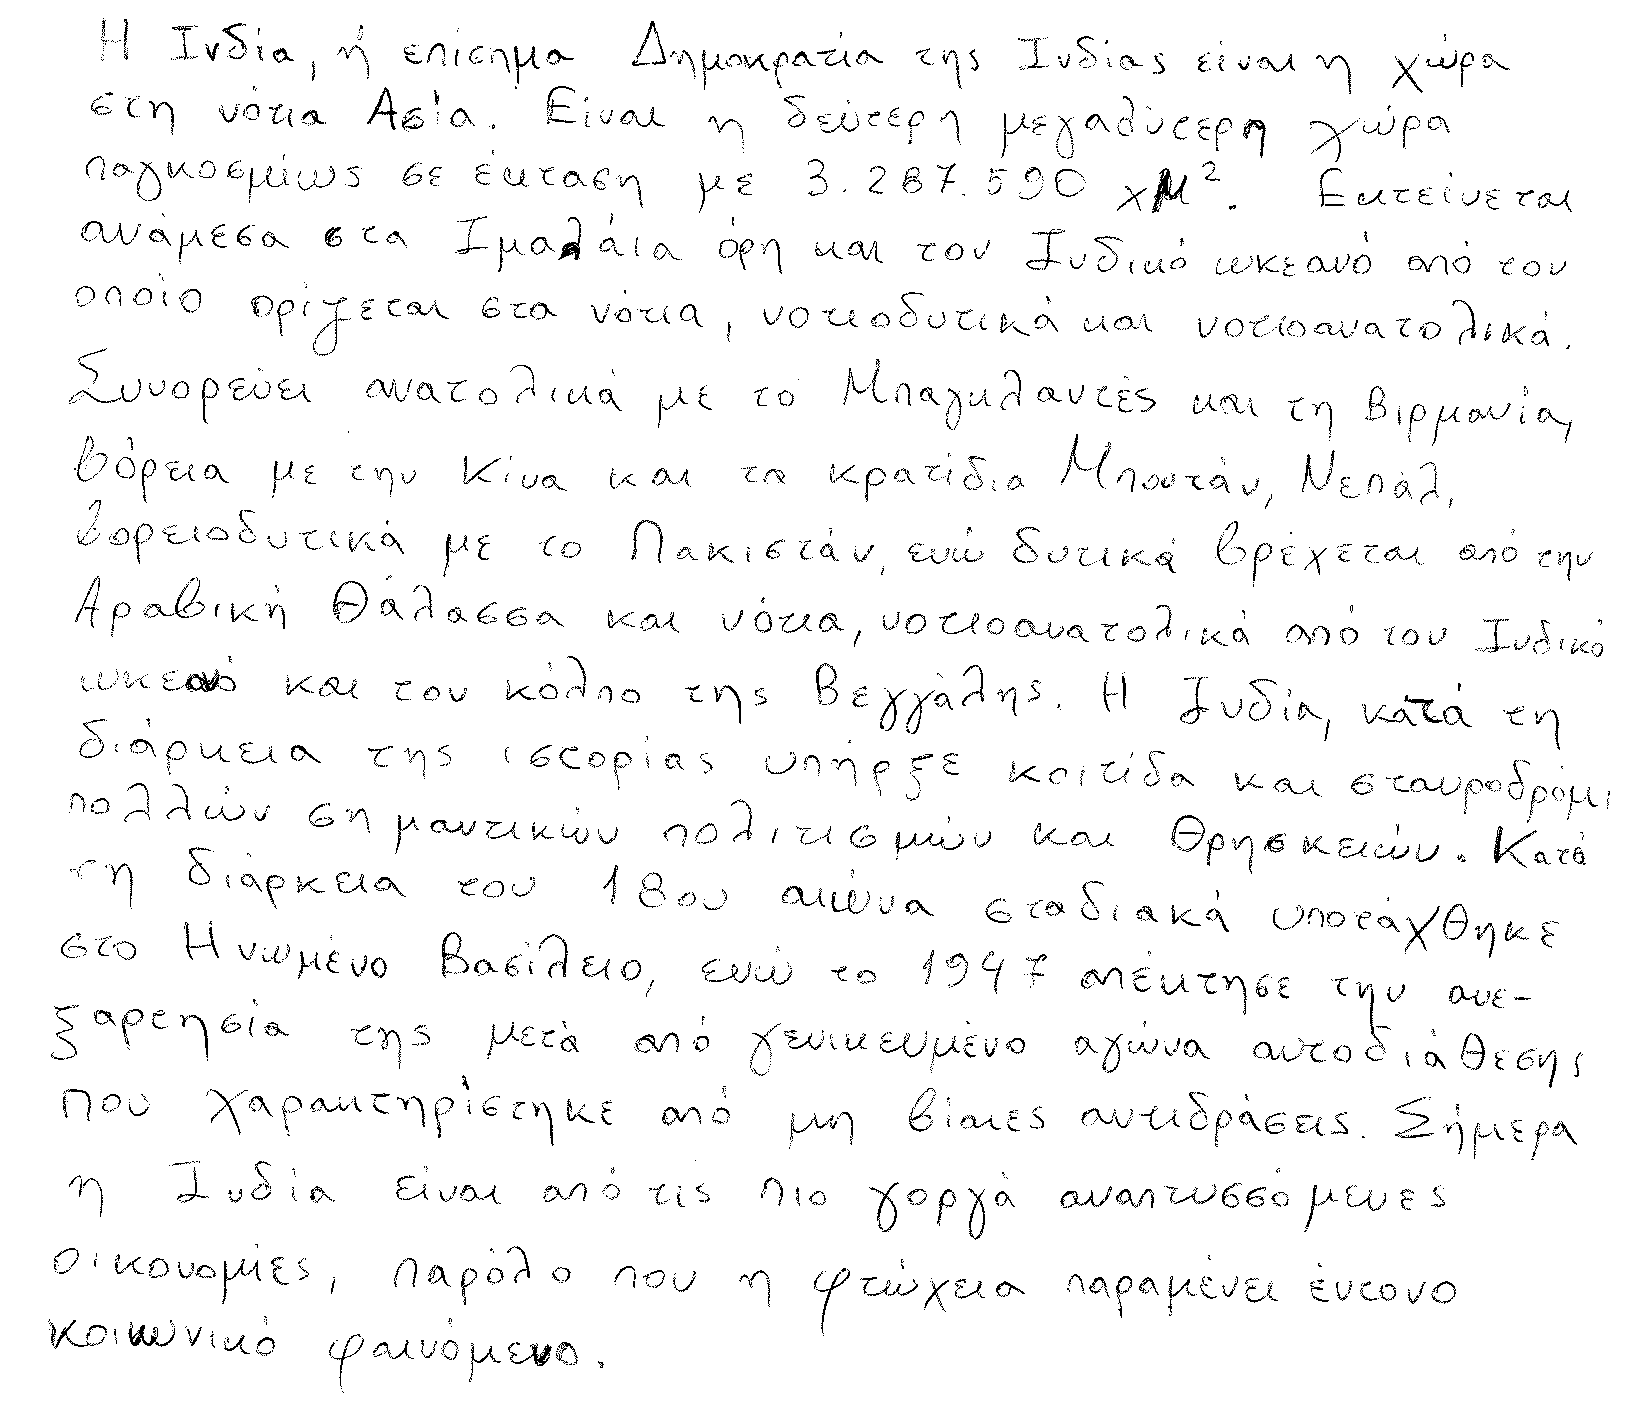 Η Ινδία, ή επίσημα Δημοκρατία της Ινδίας είναι η χώρα
στη νότια Ασία. Είναι η δεύτερη μεγαλύτερη χώρα
παγκοσμίως σε έκταση με 3.287.590 χμ². Εκτείνεται
ανάμεσα στα Ιμαλάια όρη και τον Ινδικό ωκεανό από τον
οποίο ορίζεται στα νότια, νοτιοδυτικά και νοτιοανατολικά.
Συνορεύει ανατολικά με το Μπαγκλαντές και τη Βιρμανία,
βόρεια με την Κίνα και τα κρατίδια Μπουτάν, Νεπάλ,
βορειοδυτικά με το Πακιστάν, ενώ δυτικά βρέχεται από την
Αραβική Θάλασσα και νότια, νοτιοανατολικά από τον Ινδικό
ωκεανό και τον κόλπο της Βεγγάλης. Η Ινδία, κατά τη
διάρκεια της ιστορίας υπήρξε κοιτίδα και σταυροδρόμι
πολλών σημαντικών πολιτισμών και θρησκειών. Κατά
τη διάρκεια του 18ου αιώνα σταδιακά υποτάχθηκε
στο Ηνωμένο Βασίλειο, ενώ το 1947 απέκτησε την ανε-
ξαρτησία της μετά από γενικευμένο αγώνα αυτοδιάθεσης
που χαρακτηρίστηκε από μη βίαιες αντιδράσεις. Σήμερα
η Ινδία είναι από τις πιο γοργά αναπτυσσόμενες
οικονομίες, παρόλο που η φτώχεια παραμένει έντονο
κοινωνικό φαινόμενο.